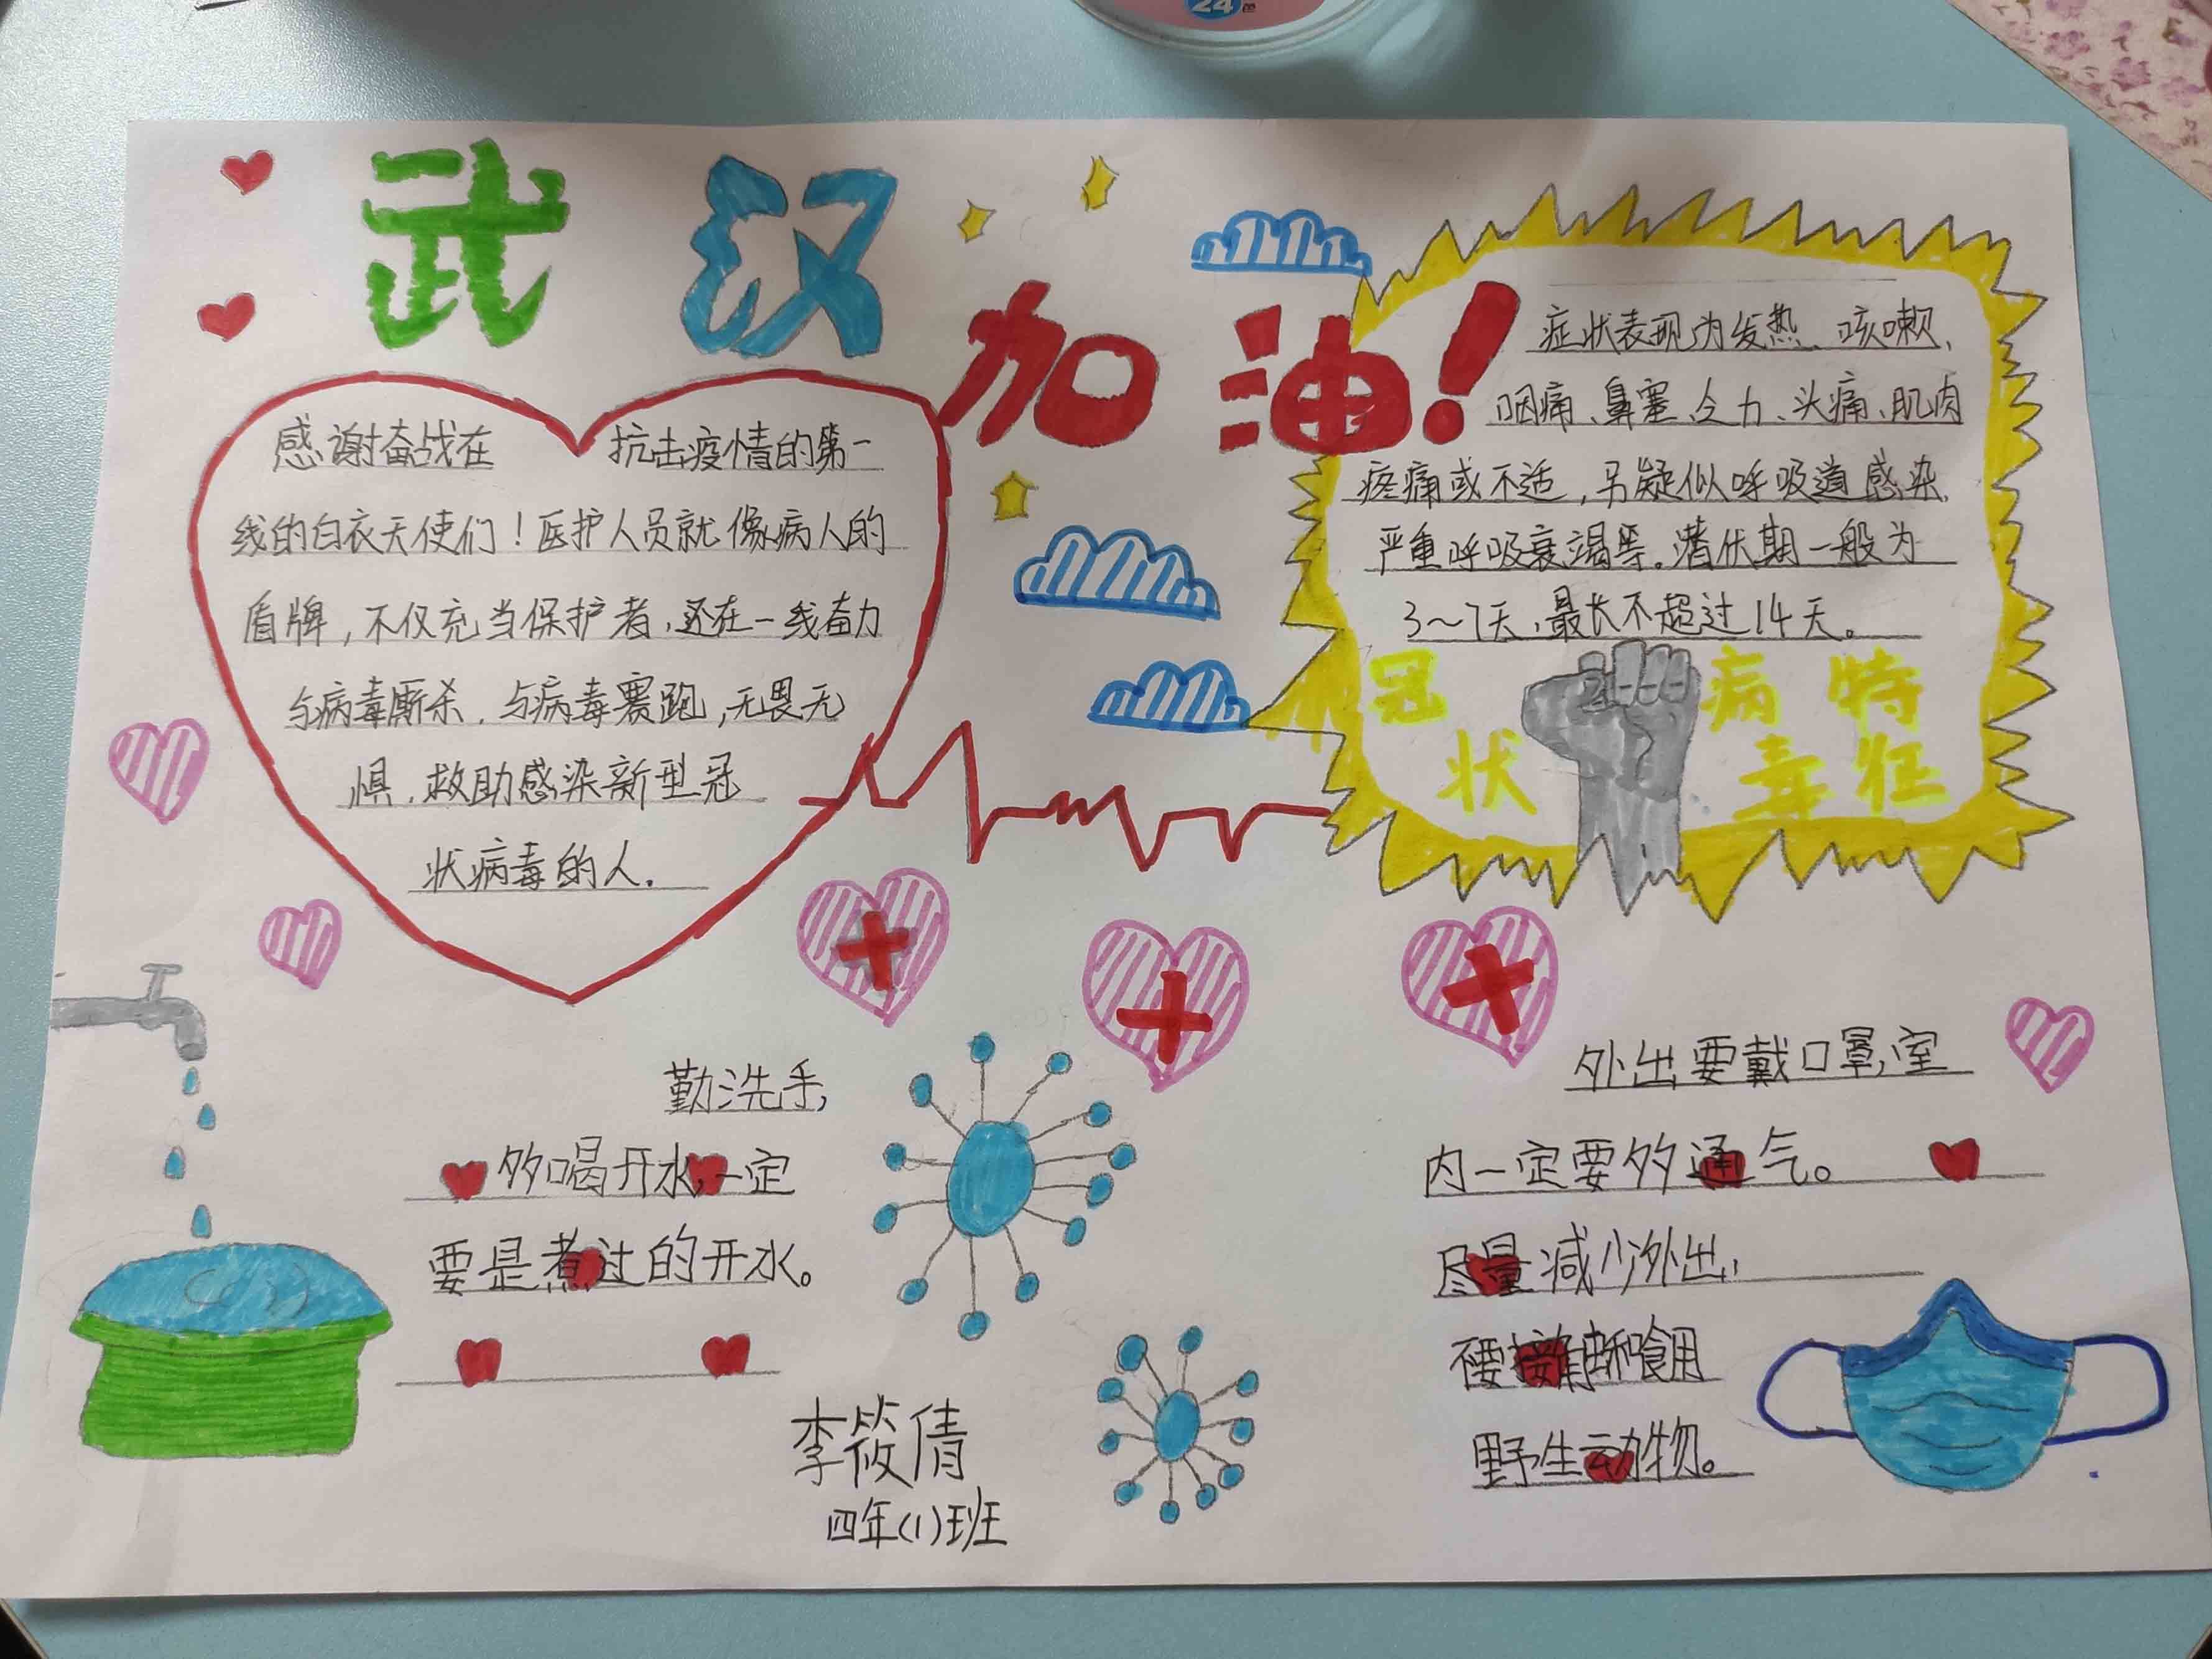 24色
武汉
加油!
感谢奋战在 抗击疫情的第一
线的白衣天使们!医护人员就像病人的
盾牌,不仅充当保护者,还在一线奋力
与病毒厮杀,与病毒赛跑,无畏无
惧,救助感染新型冠
状病毒的人.
症状表现为发热、咳嗽、
咽痛、鼻塞、乏力、头痛、肌肉
疼痛或不适,另疑似呼吸道感染,
严重呼吸衰竭等。潜伏期一般为
3~7天,最长不超过14天。
冠 病 特
状 毒 征
勤洗手,
多喝开水,一定
要是煮过的开水。
外出要戴口罩,室
内一定要多通气。
尽量减少外出,
不要接触和食用
野生动物。
李筱倩
四年(1)班